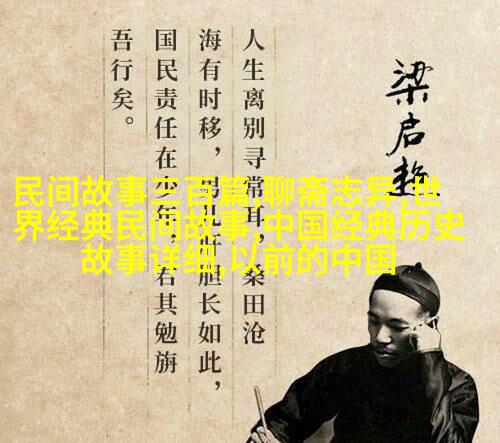 梁启超
人生离别寻常耳，桑田沧
海有时移，男儿肝胆长如此，
国民责任在少年，君其勉旃
吾行矣。
民间故事三百篇,聊斋志异,世
界经典民间故事,中国经典历史
故事详细,以前的中国